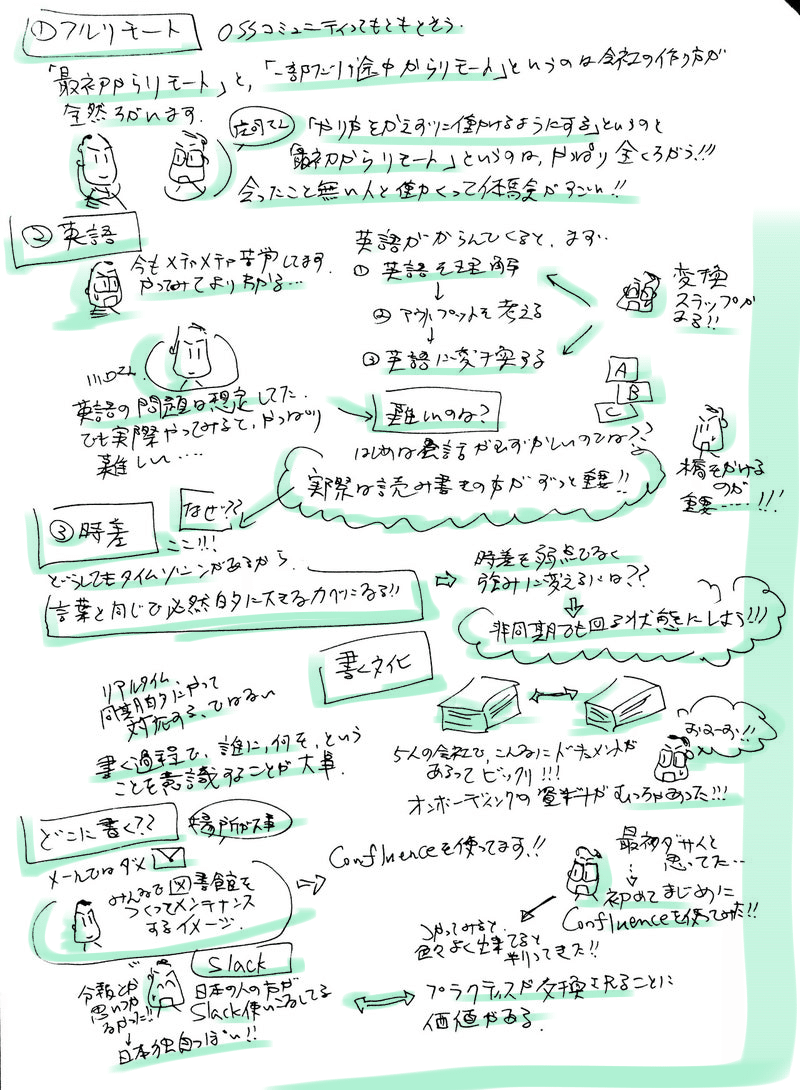 ①フルリモート
OSSコミュニティってもともとそう.
「最初からリモート」と,「一部だけ途中からリモート」というのは会社の作り方が
全然ちがいます.
「やり方をかえずに働けるようにする」というのと
最初からリモート」というのは, やっぱり全くちがう!!!
会ったこと無い人と働くって体験がすごい!!
②英語
今もメチャメチャ苦労してます.
やってみてよりわかる…
英語がからんでくると, まず..
① 英語を理解
↓
② アウトプットを考える
↓
③ 英語に変換する
変換
ステップが
ある!!
A
B
C
英語の問題は想定してた.
でも実際やってみると, やっぱり
難しい….
難しいのは?
はじめは会話がむずかしいのでは??
実際は読み書きの方がずっと重要!!
橋をかける
のが
重要……!!!
なぜ??
③時差
ここ!!!
どうしてもタイムゾーンがあるから.
言葉と同じで必然的に大きなカベになる!!
⇨
時差を弱点でなく
強みに変えるには??
⇩
非同期でも回る状態にしよう!!!
書く文化
リアルタイム,
同期的にやって
対応する, ではない
書く過程で, 誰に, 何を, という
ことを意識することが大事.
5人の会社で, こんなにドキュメントが
あってビックリ!!!
オンボーディングの資料がむっちゃあった!!!
おおーお!!
どこに書く??
場所が大事
メールではダメ
みんなで図書館を
つくってメンテナンス
するイメージ.
⇨ Confluenceを使ってます!!
最初ダサイと
思ってた…
初めてまじめに
Confluenceを使ってみた!!
やってみると.
色々よく出来てると
判ってきた!!
Slack
日本の人の方が
Slack使いこなしてる
分報とか
思いつか
なかった!!
↓
日本独自っぽい!!
プラクティスが交換されることに
価値がある.